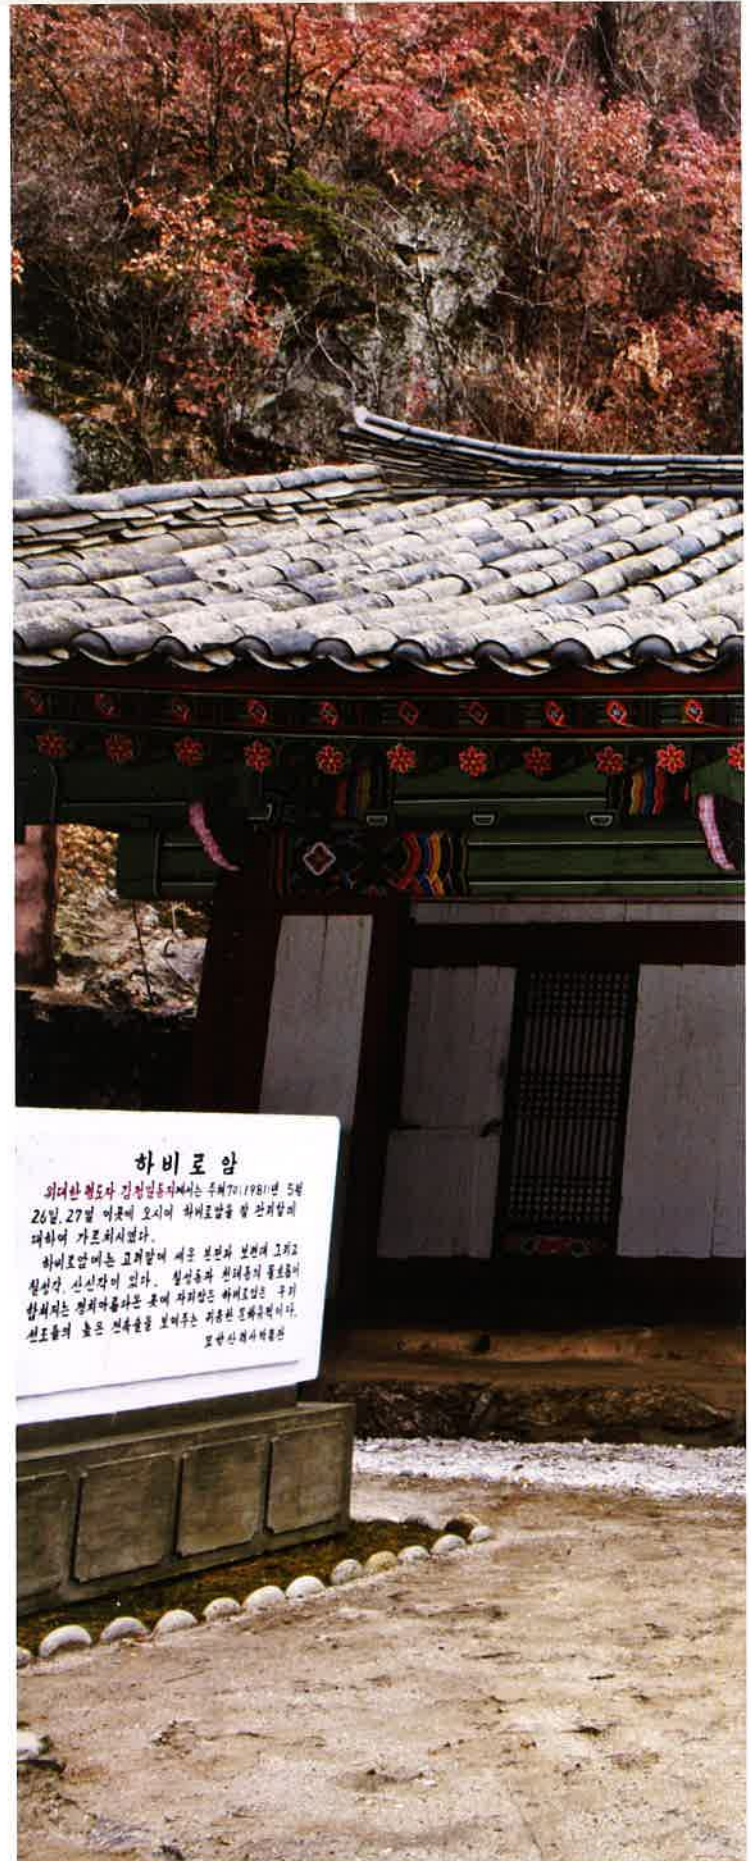 하비로암
위대한 령도자 김정일동지께서는 주체70(1981)년 5월
26일, 27일 이곳에 오시여 하비로암을 잘 관리할데
대하여 가르치시였다.
하비로암에는 고려말에 세운 보련대 그리고
칠성각, 산신각이 있다. 칠성동과 천태동의 물흐름이
합쳐지는 경치아름다운 곳에 자리잡은 하비로암은 우리
선조들의 높은 건축술을 보여주는 귀중한 문화유적이다.
묘향산력사박물관